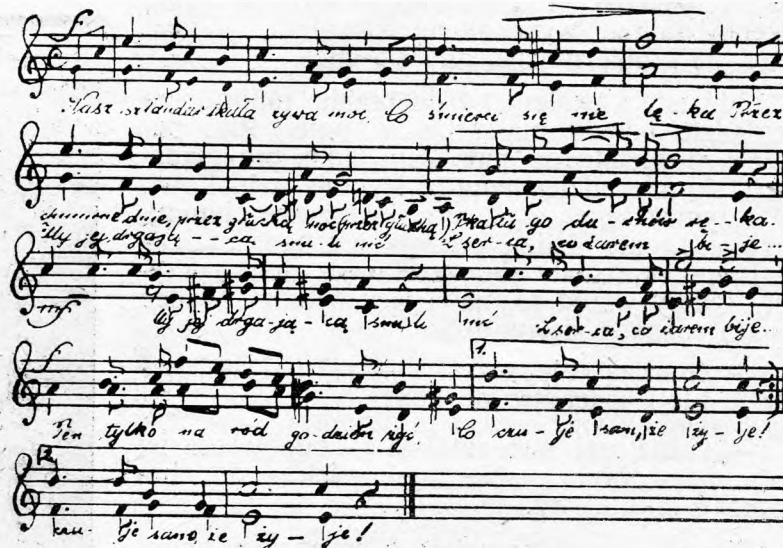 f
Nasz sztandar tkała żywa moc, Co śmierci się nie lę-ka Przez
chmurne dnie, przez głuchą noc (przez głuchą) Tkała go du-chów rę-ka.
My jej drgają--cą snuli nić Z ser-ca, co żarem bi-je...
mf
My jej drga-ją-cą snuli nić Z ser-ca, co żarem bije..
f
1.
Ten tylko na ród go-dzien żyć, Co czu-je sam, że ży-je!
2.
czu- je sam, że ży-je!